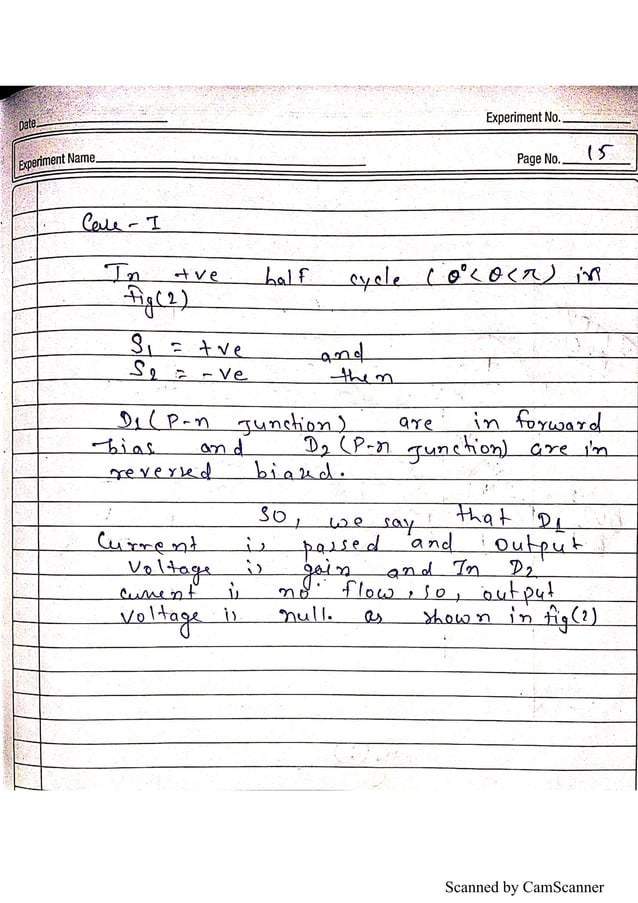 Date
Experiment No.
Experiment Name
Page No. 15
Case - I
In +ve half cycle (0°<θ<π) in
fig(2)
S1 = +ve and
S2 = -ve then
D1 (P-n Junction) are in forward
bias and D2 (P-n Junction) are in
reversed biazed.
SO, we say that D1
Current is passed and output
Voltage is gain and In D2
current is no flow, so, output
voltage is null. as shown in fig(2)
Scanned by CamScanner